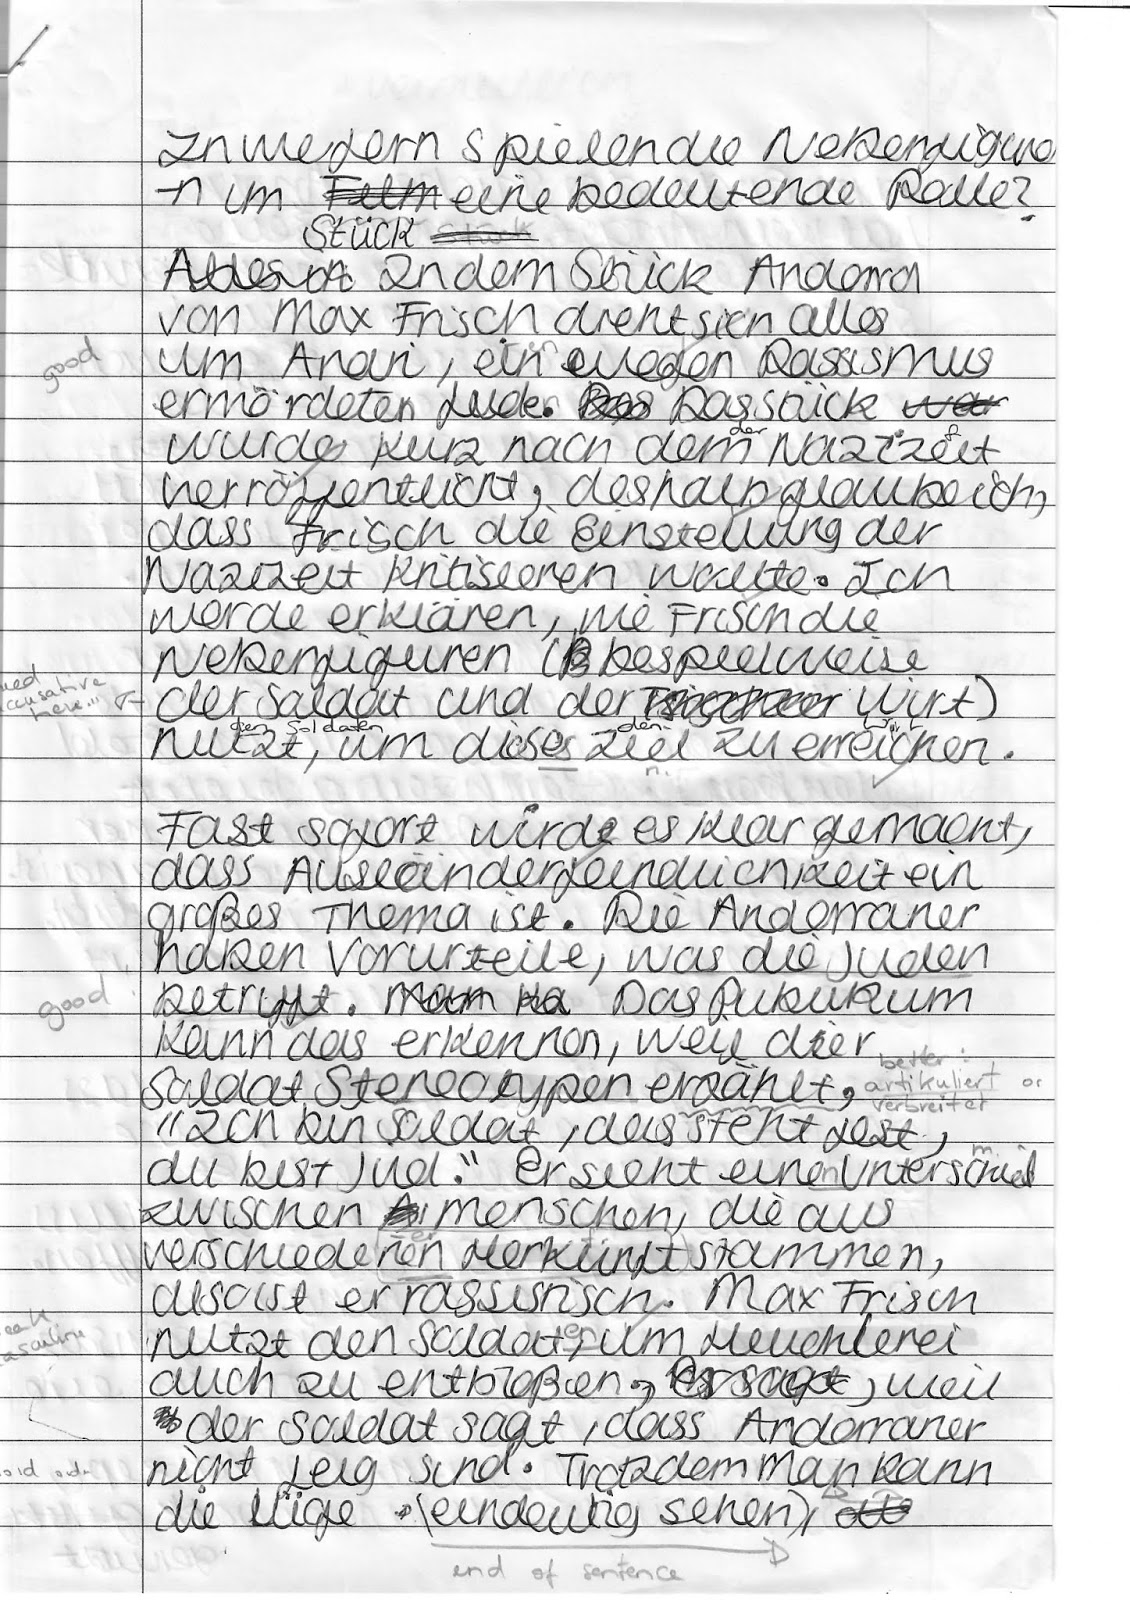 Inwiefern spielen die Nebenfigure
-n im Film eine bedeutende Rolle?
Stück Stück
Alles ist In dem Stück Andorra
von Max Frisch dreht sich alles
good
um Andri, ein wegen Rassismus
ermördeten Jude. Das Das Stück war
wurde kurz nach dem der Nazizeit
verröffentlicht, deshalb glaube ich,
dass Frisch die Einstellung der
Nazizeit kritisieren wollte. Ich
werde erklären, wie Frisch die
Nebenfiguren (B bespielweise
accusative here
der Soldat und der Wirt)
den Soldaten den Wirt
nutzt, um dieses Ziel zu erreichen.
n.
Fast sofort wird es klar gemacht,
dass Auseeindergeindlichkeit ein
großes Thema ist. Die Andorraner
haben Vorurteile, was die Juden
good
betrifft. Man ha Das Publikum
kann das erkennen, weil der
better:
Soldat Stereotypen erzählt, artikuliert or
verbreitet
"Ich bin Soldat, das steht fest,
m.
du bist Jud." Er sieht einen Unterschied
zwischen A Menschen, die aus
er
verschiedenen Herkünft stammen,
also ist er rassistisch. Max Frisch
weak
masculine
nutzt den Soldaten, um Heuchlerei
auch zu entbloßen, Er sagt, weil
der Soldat sagt, dass Andorraner
word order
nicht feig sind. Trotzdem man kann
die Lüge (eindeutig sehen),
end of sentence